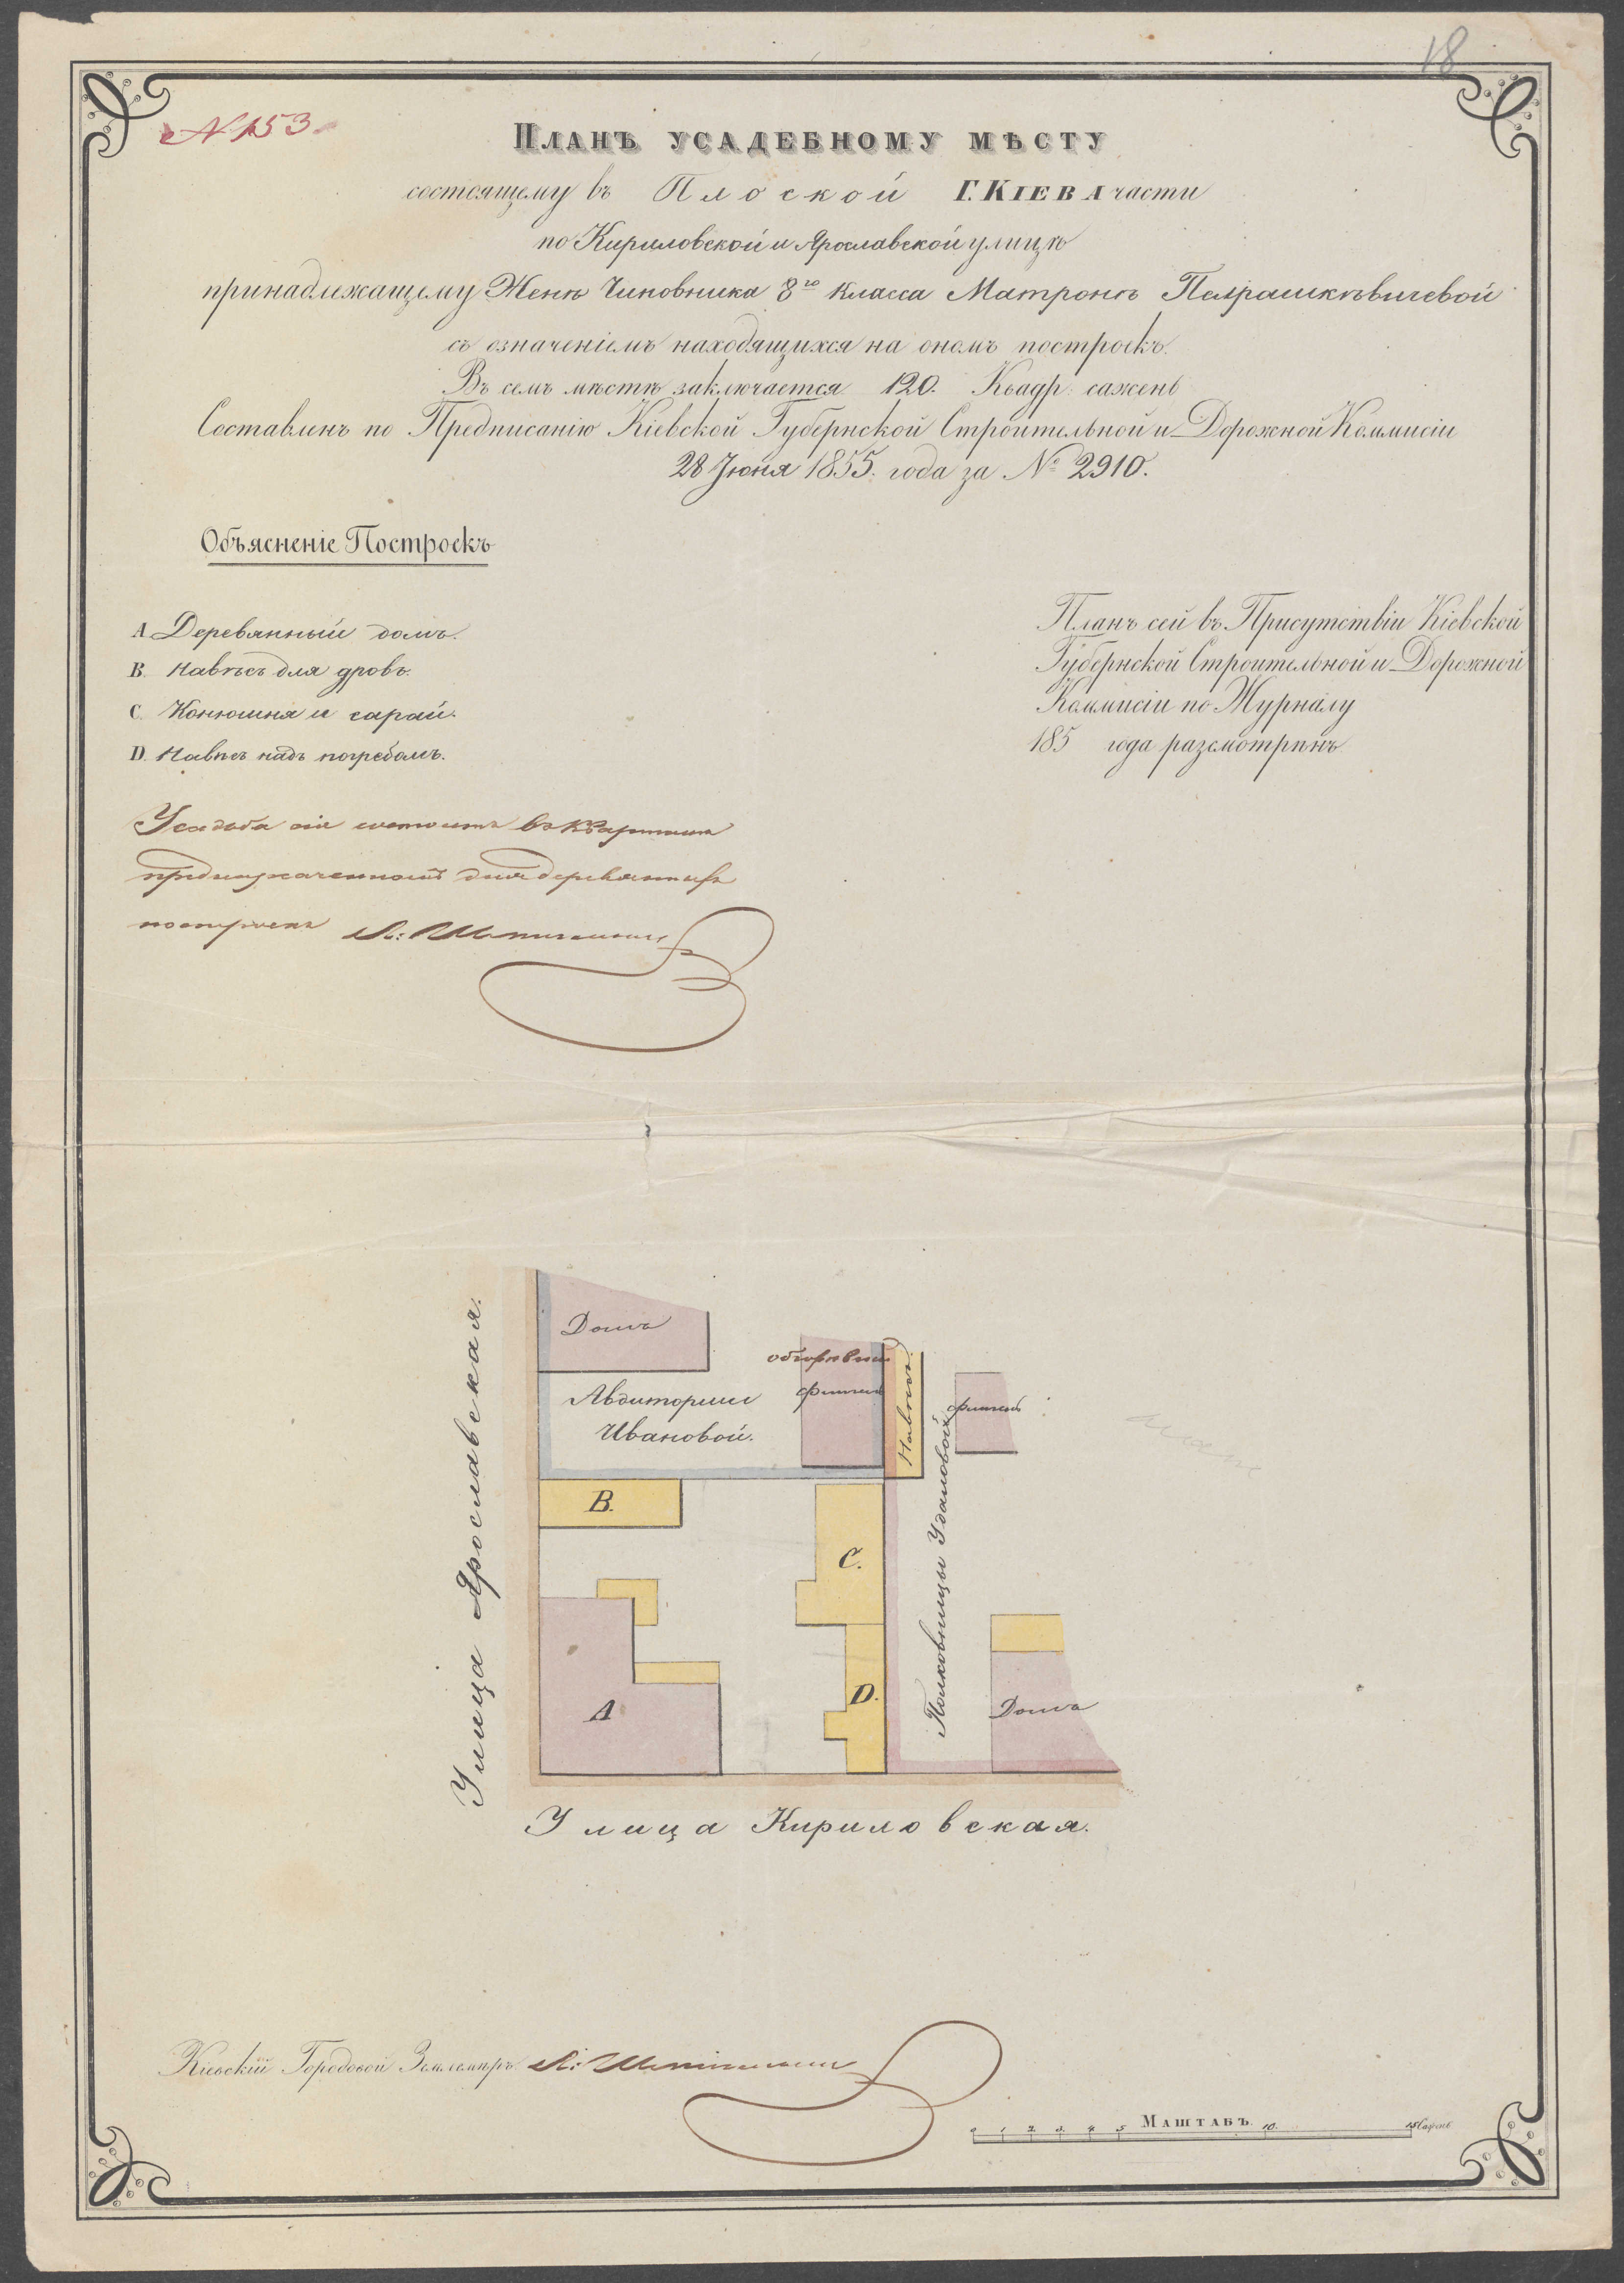 18
№ 153.
Планъ усадебному мѣсту
состоящему въ Плоской Г. Кіева части
по Кириловской и Ярославской улицѣ
принадлежащему Женѣ Чиновника 8го Класса Матронѣ Петрашкѣвичевой
съ означеніемъ находящихся на ономъ построекъ.
Въ семъ мѣстѣ заключается 120. Квадр: сажень
Составленъ по Предписанію Кіевской Губернской Строительной и Дорожной Коммисіи
28 Іюня 1855. года за № 2910.
Объясненіе Построекъ
A. Деревянный домъ.
B. Навѣсъ для дровъ.
C. Конюшня и сарай.
D. Навѣсъ надъ погребомъ.
Планъ сей въ Присутствіи Кіевской
Губернской Строительной и Дорожной
Коммисіи по Журналу
185 года разсмотрѣнъ
Усадьба сія состоитъ въ кварталѣ
предназначенномъ для деревянныхъ
построекъ
Домъ
обгорѣвшій
флигель
Авдиторши
Ивановой.
Навѣсъ.
флигель
B.
C.
Полковницы Удаловой
A
D.
Домъ
Улица Ярославская.
Улица Кириловская.
Кіевскій Городовой Землемѣръ
Маштабъ.
0 1 2 3 4 5 10. 15 Сажень